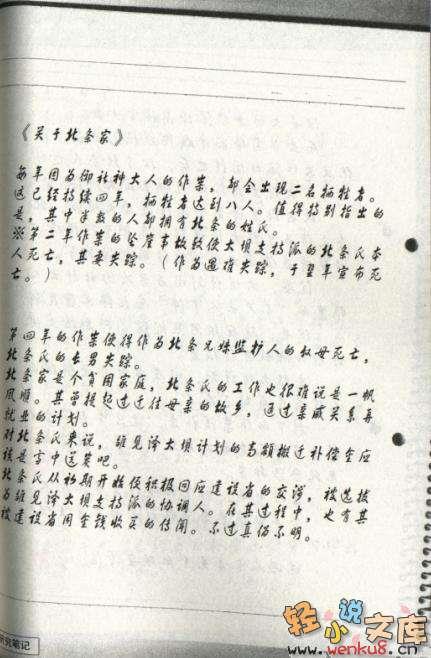 《关于北条家》
每年因为御社神大人的作祟，都会出现二名牺牲者。
这已经持续四年，牺牲者达到八人。值得特别指出的
是，其中半数的人都拥有北条的姓氏。
※第二年作祟的坠崖事故致使大坝支持派的北条氏本
人死亡，其妻失踪。（作为遇难失踪，于翌年宣布死
亡。）
第四年的作祟使得作为北条兄妹监护人的叔母死亡，
北条氏的长男失踪。
北条家是个贫困家庭，北条氏的工作也很难说是一帆
风顺。其曾提起过迁往母亲的故乡，通过亲戚关系再
就业的计划。
对北条氏来说，雏见泽大坝计划的高额搬迁补偿金应
该是雪中送炭吧。
北条氏从初期开始便积极回应建设省的交涉，被选拔
为雏见泽大坝支持派的协调人。在其过程中，也有其
被建设省用金钱收买的传闻。不过真伪不明。
研究笔记
轻小说文库
www.wenku8.cn